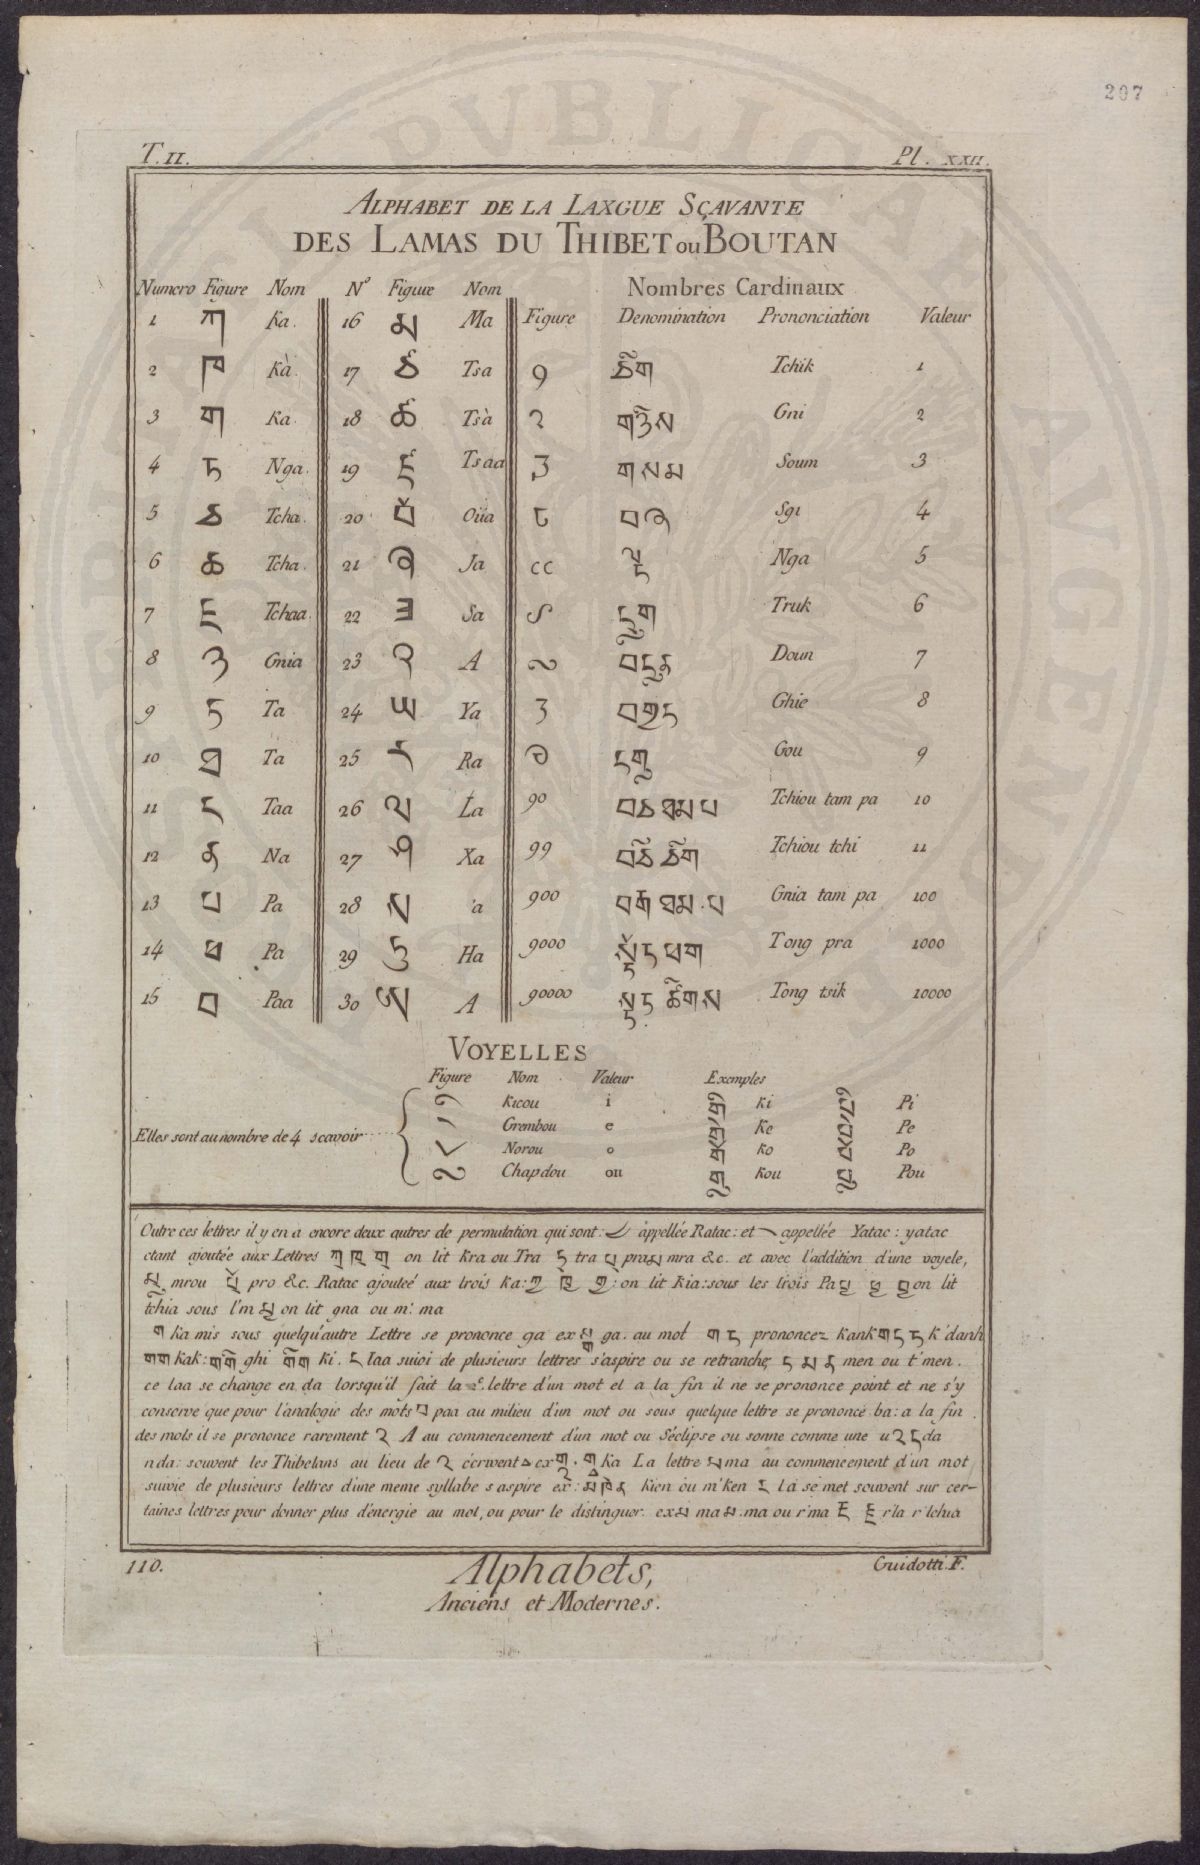 207
T. II.
Pl. XXII.
ALPHABET DE LA LAXGUE SÇAVANTE
DES LAMAS DU THIBET ou BOUTAN
Numero Figure Nom N° Figure Nom Nombres Cardinaux
Figure Denomination Prononciation Valeur
1 ཀ Ka. 16 མ Ma
2 ཁ Kà. 17 ཙ Tsa ༡ ཅིག Tchik 1
3 ག Ka. 18 ཚ Tsà ༢ གཉིས Gni 2
4 ང Nga. 19 ཛ Tsaa ༣ གསམ Soum 3
5 ཅ Tcha. 20 ཝ Oüa ༤ བཞི Sgi 4
6 ཆ Tcha. 21 ཞ Ja ༥ ལྔ Nga 5
7 ཇ Tchaa. 22 ཟ Sa ༦ དྲུག Truk 6
8 ཉ Gnia 23 འ A ༧ བདུན Doun 7
9 ཏ Ta 24 ཡ Ya ༨ བརྒྱད Ghie 8
10 ཐ Ta 25 ར Ra ༩ དགུ Gou 9
11 ད Taa 26 ལ La ༡༠ བཅཐམཔ Tchiou tam pa 10
12 ན Na 27 ཤ Xa ༡༡ Tchiou tchi 11
13 པ Pa 28 ས 'a ༡༠༠ Gnia tam pa 100
14 ཕ Pa 29 ཧ Ha ༡༠༠༠ Tong pra 1000
15 བ Paa 30 ཨ A ༡༠༠༠༠ Tong tsik 10000
VOYELLES
Figure Nom Valeur Exemples
Kicou i ཀི Ki པི Pi
Grembou e ཀེ Ke པེ Pe
Norou o ཀོ Ko པོ Po
Chapdou ou ཀུ Kou པུ Pou
Elles sont au nombre de 4 scavoir
Outre ces lettres il y en a encore deux autres de permutation qui sont: appellée Ratac: et appellée Yatac: yatac
etant ajoutée aux Lettres ཀ ཁ ག on lit Kra ou Tra tra pra mra &c. et avec l'addition d'une voyele,
mrou pro &c. Ratac ajouteé aux trois Ka: on lit Kia: sous les trois Pa on lit
tchia sous l'm on lit gna ou m: ma
ག Ka mis sous quelqu'autre Lettre se prononce ga ex ga. au mot ག ད prononcez Kank k'danh
གག Kak: ghi ki. ད Taa suivi de plusieurs lettres s'aspire ou se retranche ད མ ན men ou t'men.
ce taa se change en da lorsqu'il fait la 2e. lettre d'un mot et a la fin il ne se prononce point et ne s'y
conserve que pour l'analogie des mots བ paa au milieu d'un mot ou sous quelque lettre se prononce ba: a la fin
des mots il se prononce rarement འ A au commencement d'un mot ou s'éclipse ou sonne comme une u འ ད da
nda: souvent les Thibetans au lieu de འ écrivent ex ka La lettre མ ma au commencement d'un mot
suivie de plusieurs lettres d'une meme syllabe s aspire ex: kien ou m'ken ར La se met souvent sur cer-
taines lettres pour donner plus d'energie au mot, ou pour le distinguer. ex ma ma ou r'ma r'la r'tchia
110.
Alphabets,
Anciens et Modernes.
Guidotti. F.